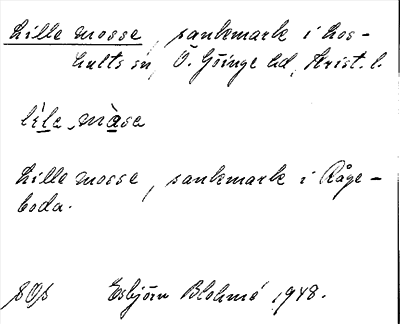 Lille mosse, sankmark i Los-
hults sn, Ö. Göinge hd, Krist. l.
lìle, màse
Lille mosse, sankmark i Råge-
boda.
Esbjörn Blohmé 1948.